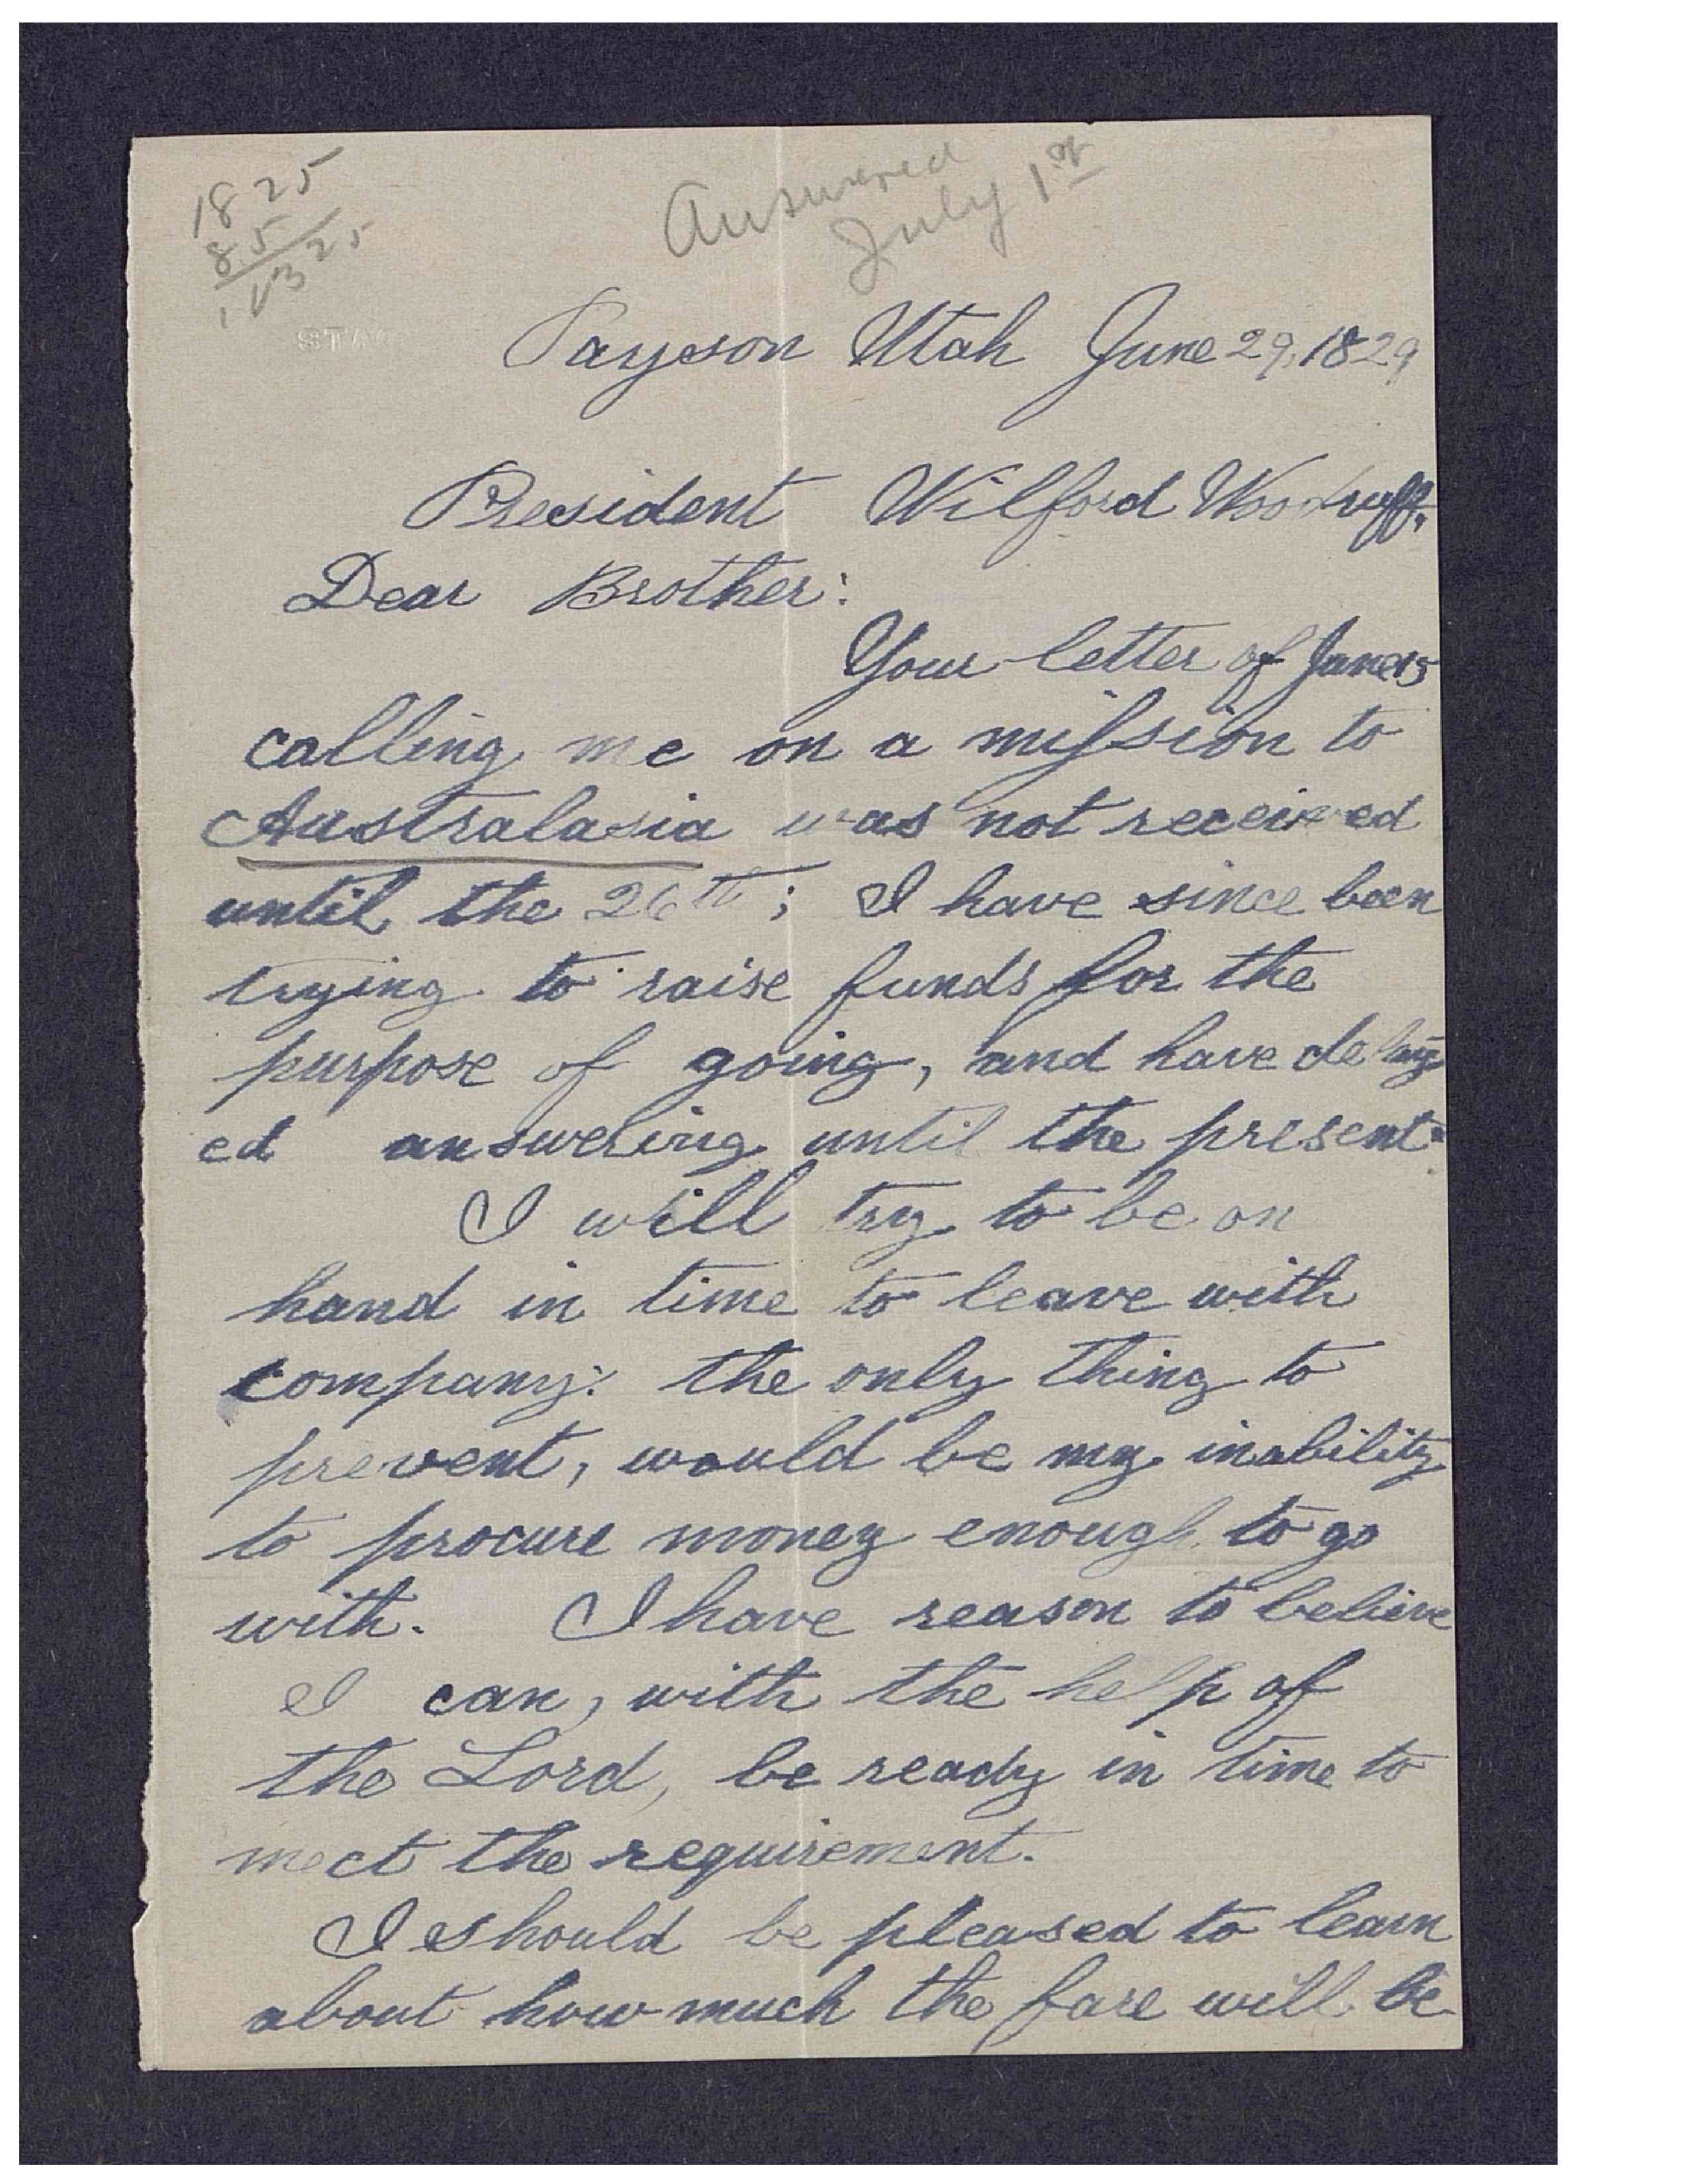 1825
85
Answered
July 1st
STA
Payson Utah June 29, 1829
President Wilford Woodruff,
Dear Brother:
Your letter of June 15
calling me on a mission to
Australasia was not received
until the 26th; I have since been
trying to raise funds for the
purpose of going, and have delay-
ed answering until the present.
I will try to be on
hand in time to leave with
company: the only thing to
prevent, would be my inability
to procure money enough to go
with. I have reason to believe
I can, with the help of
the Lord, be ready in time to
meet the requirement.
I should be pleased to learn
about how much the fare will be